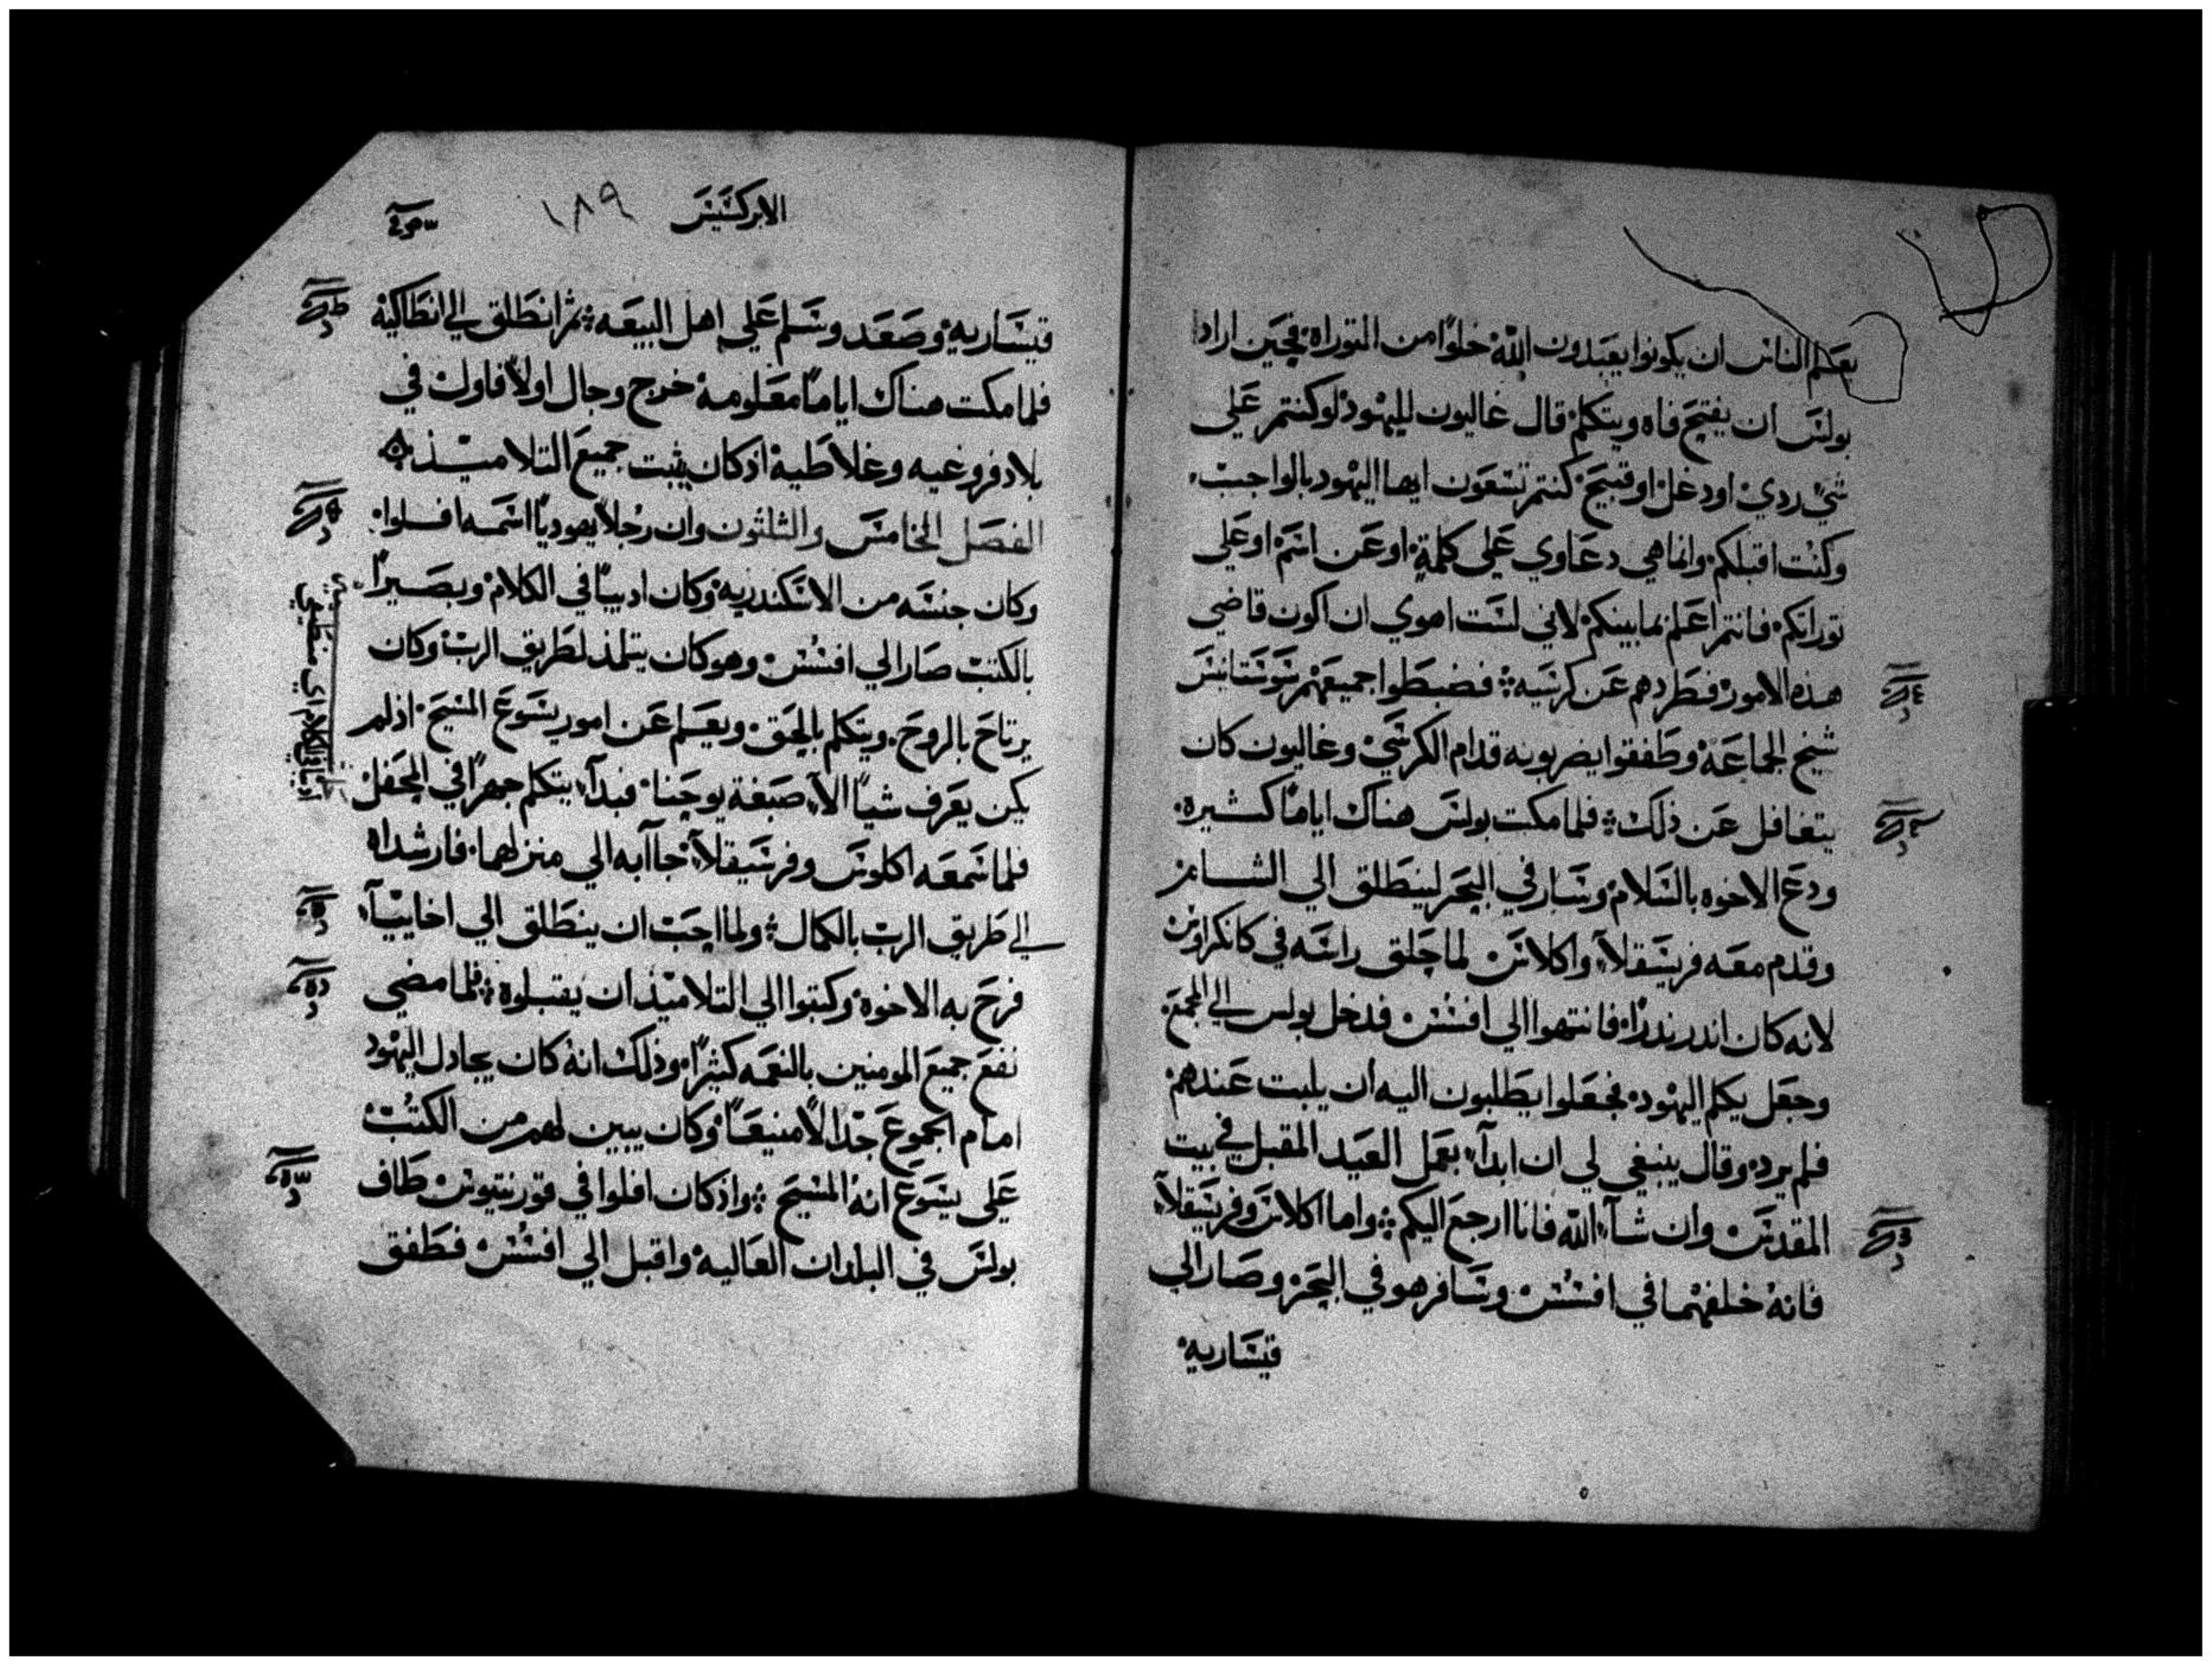 يعلم الناس ان يكونوا يعبدون الله خلوًا من التوراة فحين اراد
بولس ان يفتح فاه ويتكلم قال غاليون لليهود لو كنتم على
شيء ردي او دغل او قبيح كنتم تسعون ايها اليهود بالواجب
وكنت اقبلكم وانما هي دعاوي على كلمة او عن اسم او على
توراتكم فانتم اعلم بما بينكم لاني لست اهوي ان اكون قاضي
هذه الامور فطردهم عن كرسيه فضبطوا جميعهم سوستانيس
شيخ الجماعة وطفقوا يضربونه قدام الكرسي وغاليون كان
يتغافل عن ذلك فلما مكت بولس هناك ايامًا كثيره
ودع الاخوه بالسلام وسار في البحر لينطلق الي الشام
وقدم معه فريسقلا واكلاس لما حلق راسه في كانكراوس
لانه كان اندر ندرًا فانتهوا الي افسس فدخل بولس الي المجمع
وجعل يكلم اليهود فجعلوا يطلبون اليه ان يلبت عندهم
فلم يرد وقال ينبغي لي ان ابدآ بعمل العيد المقبل في بيت
المقدس وان شآ الله فانا ارجع اليكم واما اكلاس وفريسقلا
فانه خلفهما في افسس وسافر هو في البحر وصار الي
قيساريه
الابركسيس ١٨٩
قيساريه وصعد وسلم علي اهل البيعه ثم انطلق الي انطاكية
فلما مكت هناك ايامًا معلومه خرج وجال اولًا فاول في
بلاد فروغيه وغلاطية اذ كان يثبت جميع التلاميذ
الفصل الخامس والثلثون وان رجلًا يهوديًا اسمه افلوا
وكان جنسه من الاسكندريه وكان اديبًا في الكلام وبصيرًا
بالكتب صار الي افسس وهو كان يتلمذ لطريق الرب وكان
يرتاح بالروح ويتكلم بالحق ويعلم عن امور يسوع المسيح اذ لم
يكن يعرف شيًا الا صبغة يوحنا فبدآ يتكلم جهرًا في المحفل
فلما سمعه اكلوس وفرسيقلا جاآ به الي منزلهما فارشداه
الي طريق الرب بالكمال ولما احب ان ينطلق الي اخاييآ
فرح به الاخوة وكتبوا الي التلاميذ ان يقبلوه فلما مضي
نفع جميع المومنين بالنعمه كثيرًا وذلك انه كان يجادل اليهود
امام الجموع جدالًا منيعًا وكان يبين لهم من الكتب
على يسوع انه المسيح واذ كان افلوا في قورنتيوس طاف
بولس في البلدان العاليه واقبل الي افسس فطفق